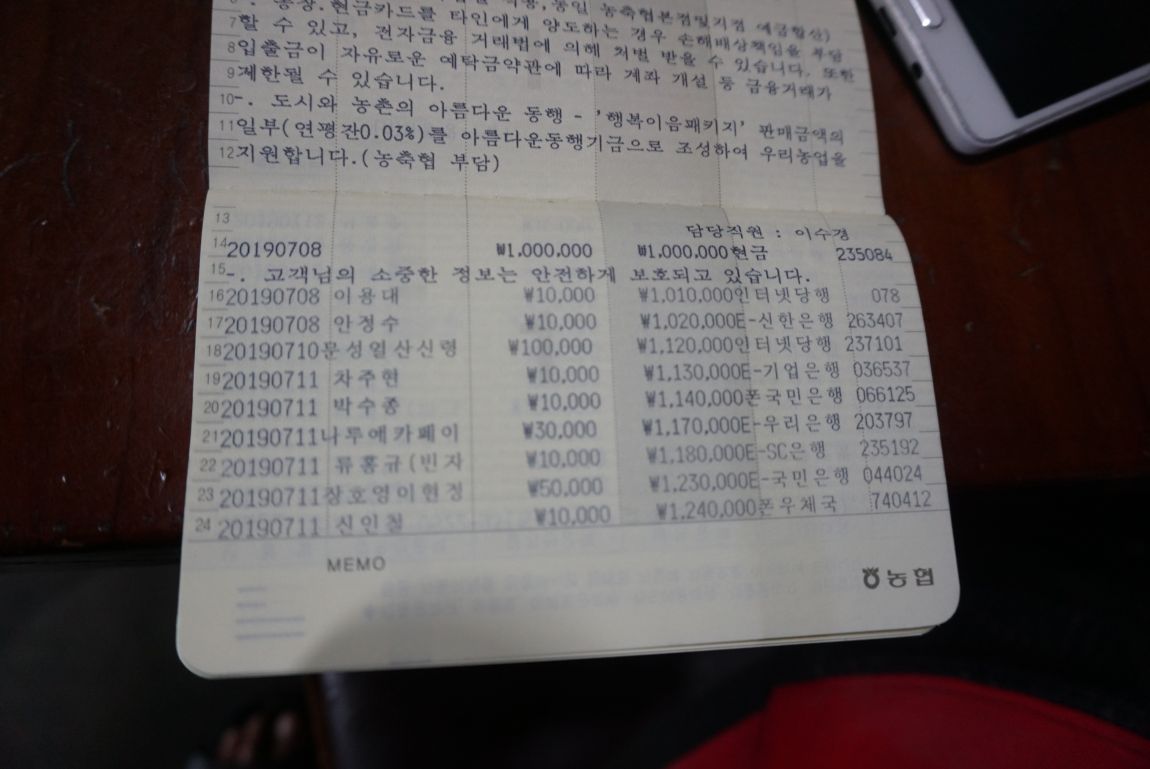 통장.현금카드를 타인에게 양도하는 경우 손해배상책임을 부담
7할 수 있고, 전자금융 거래법에 의해 처벌 받을 수 있습니다. 또한
8입출금이 자유로운 예탁금약관에 따라 계좌 개설 등 금융거래가
9제한될 수 있습니다.
10-. 도시와 농촌의 아름다운 동행 - '행복이음패키지' 판매금액의
11일부(연평잔0.03%)를 아름다운동행기금으로 조성하여 우리농업을
12지원합니다.(농축협 부담)
13 담당직원 : 이수경
14 20190708 ₩1,000,000 ₩1,000,000현금 235084
15-. 고객님의 소중한 정보는 안전하게 보호되고 있습니다.
16 20190708 이용대 ₩10,000 ₩1,010,000인터넷당행 078
17 20190708 안정수 ₩10,000 ₩1,020,000E-신한은행 263407
18 20190710문성열산신령 ₩100,000 ₩1,120,000인터넷당행 237101
19 20190711 차주현 ₩10,000 ₩1,130,000E-기업은행 036537
20 20190711 박수종 ₩10,000 ₩1,140,000폰국민은행 066125
21 20190711나루예카페이 ₩30,000 ₩1,170,000E-우리은행 203797
22 20190711 류홍규(빈자 ₩10,000 ₩1,180,000E-SC은행 235192
23 20190711장호영이현정 ₩50,000 ₩1,230,000E-국민은행 044024
24 20190711 신인철 ₩10,000 ₩1,240,000폰우체국 740412
MEMO
농협